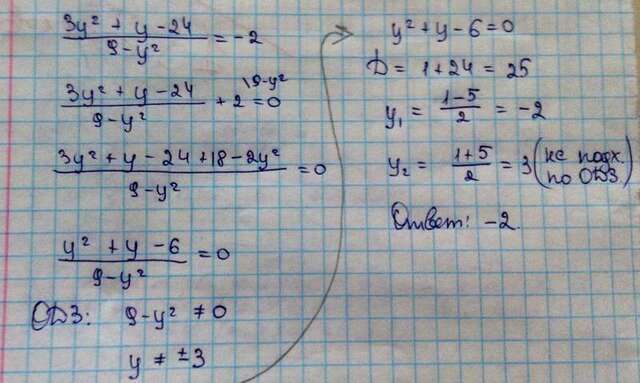 (3y² + y − 24)/(9 − y²) = −2
(3y² + y − 24)/(9 − y²) + 2 \9−y² = 0
(3y² + y − 24 + 18 − 2y²)/(9 − y²) = 0
(y² + y − 6)/(9 − y²) = 0
ОДЗ: 9 − y² ≠ 0
y ≠ ±3
y² + y − 6 = 0
D = 1 + 24 = 25
y₁ = (1 − 5)/2 = −2
y₂ = (1 + 5)/2 = 3 (не подх. по ОДЗ)
Ответ: −2.